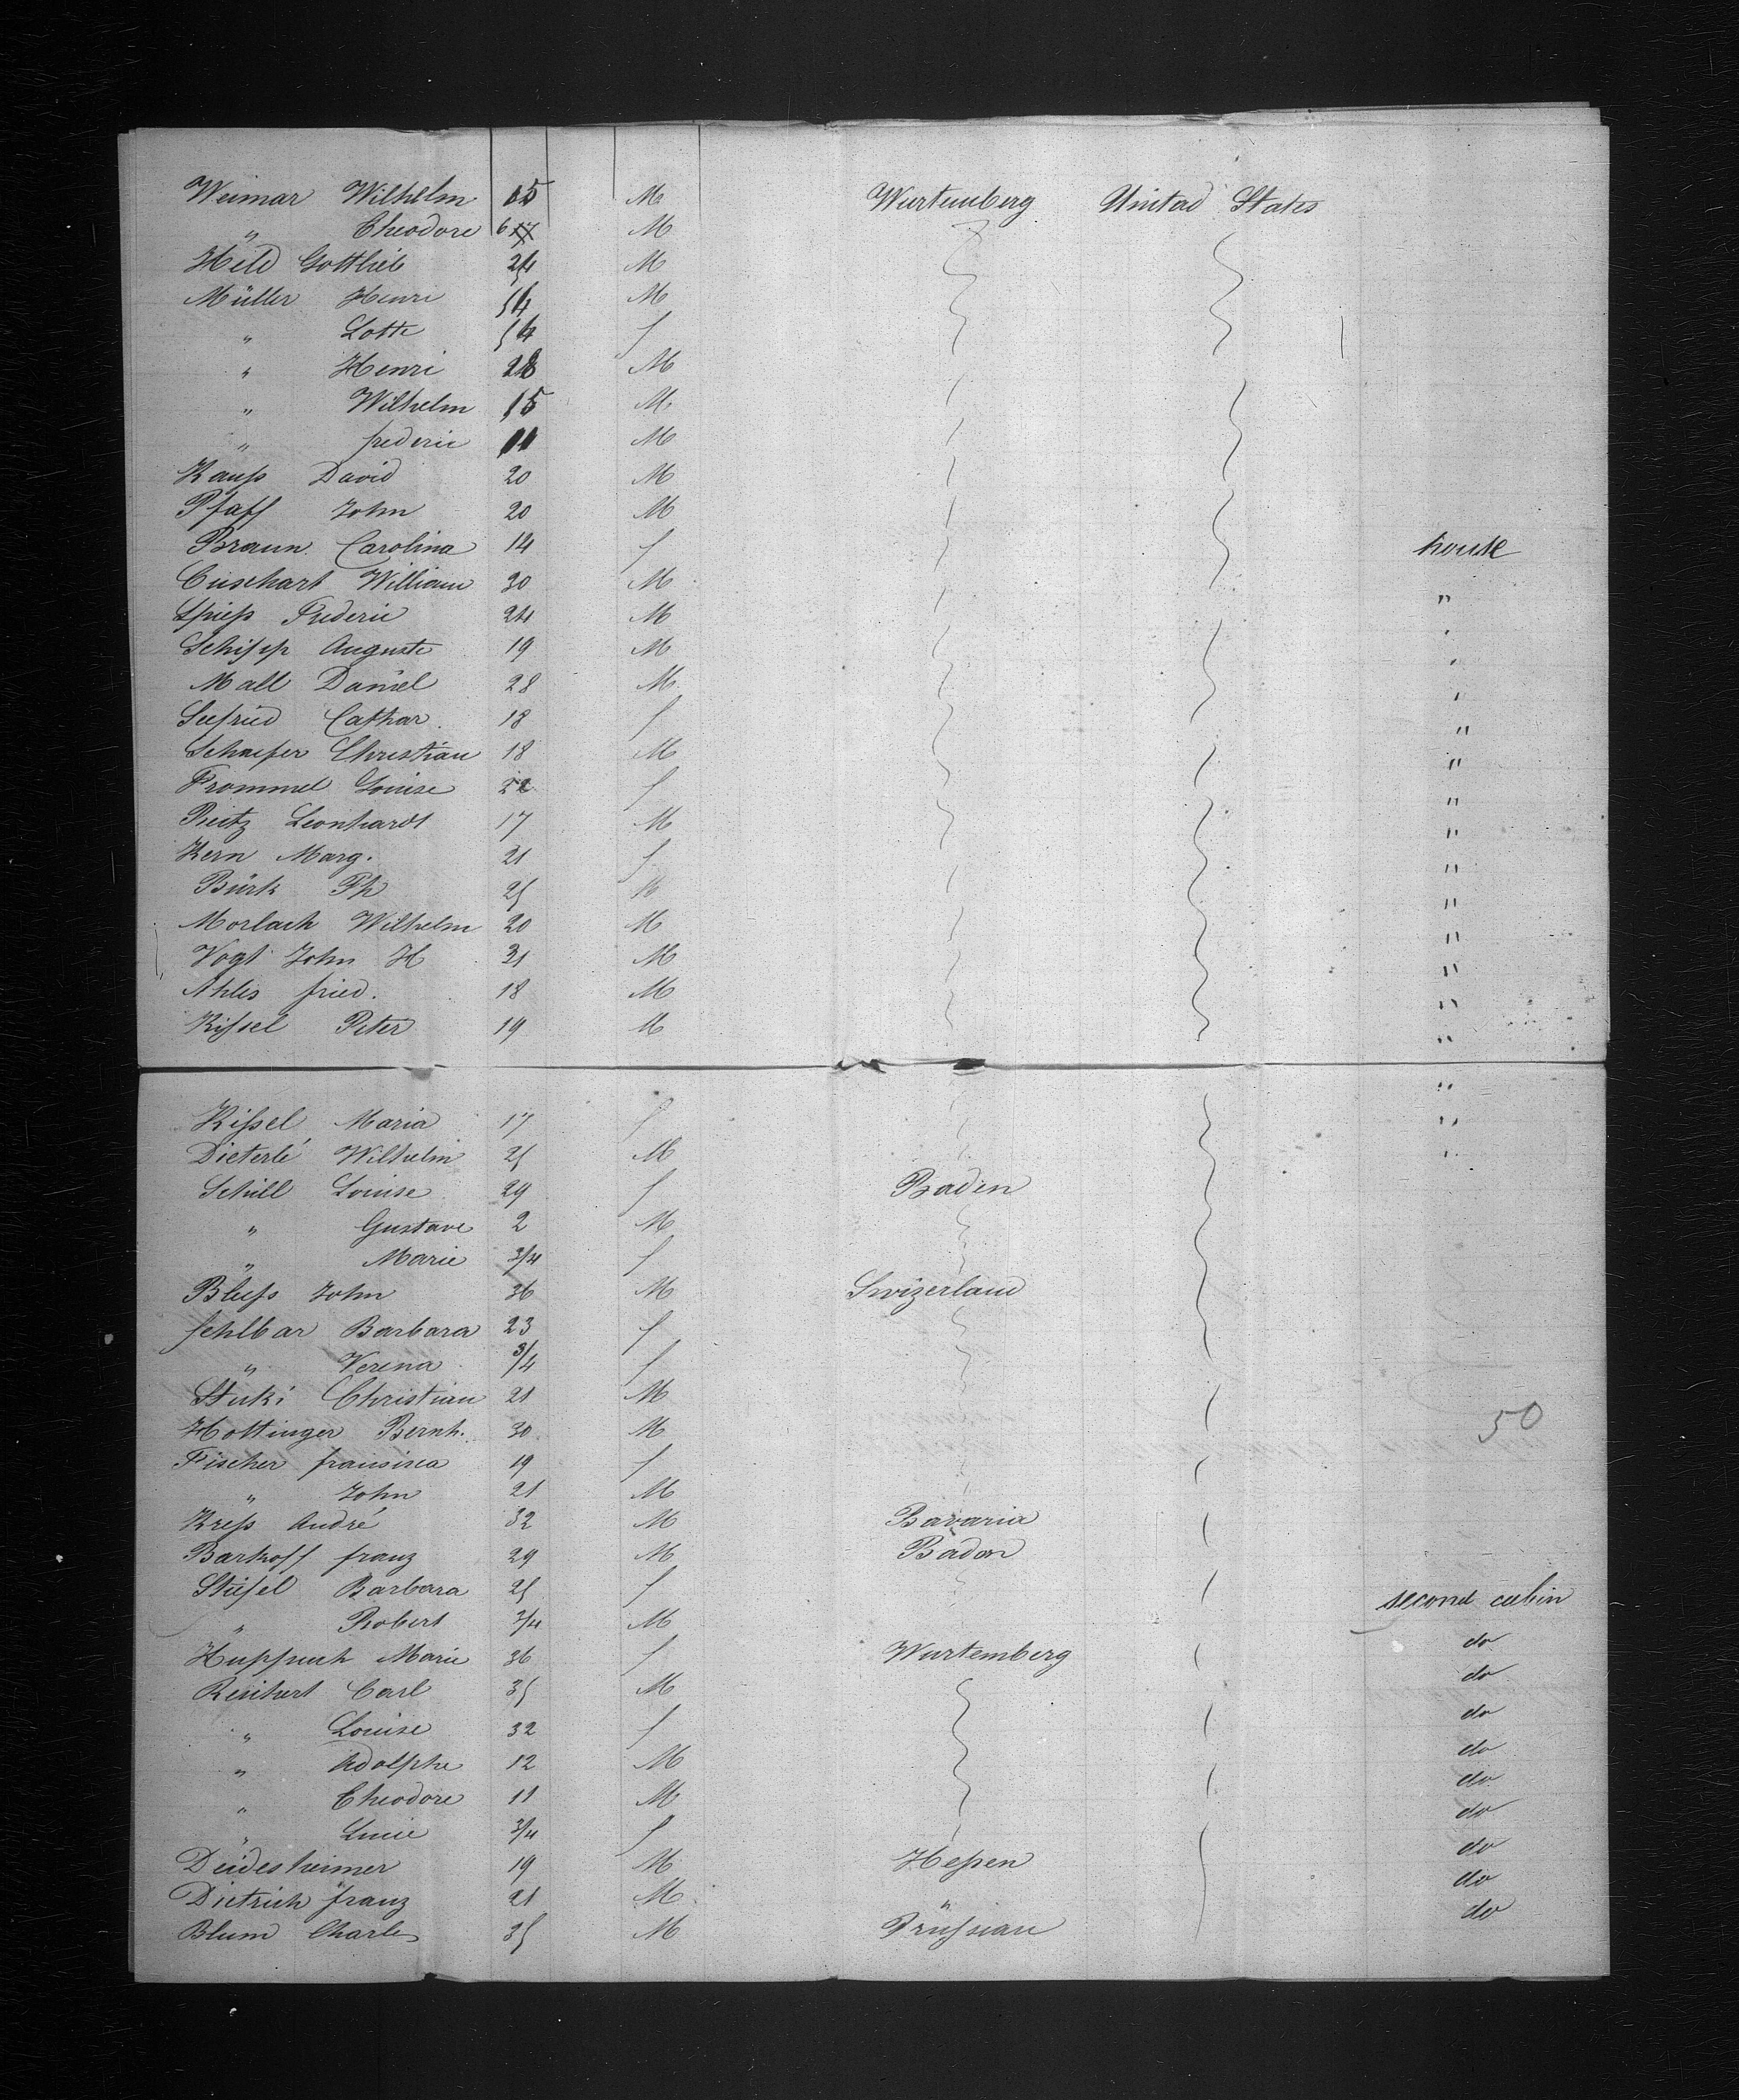 Weimar Wilhelm 15 M Wurtemberg Unitad States
" Theodore 6 M
Held Gottlieb 24 M
Müller Henri 54 M
" Lotte 54 f
" Henri 28 M
" Wilhelm 15 M
" frederic 11 M
Kauſs David 20 M
Pfaff John 20 M
Braun Carolina 14 f house
William 30 M "
Spieſs Frederic 24 M "
Schipp Auguste 19 M "
Mall Daniel 28 M "
Seefried Cathar. 18 f "
Schaefer Christian 18 M "
Frommel Louise 22 f "
Leonhardt 17 M "
Kern Marg. 21 f "
Bürk Ph 25 M "
Morlach Wilhelm 20 M "
Vogt John H 31 M "
Ahles fried. 18 M "
Kiſsel Peter 19 M "
Kiſsel Maria 17 f "
Dieterlé Wilhelm 25 M "
Schill Louise 29 f Baden
" Gustave 2 M
" Marie 3/4 f
Bleſs John 36 M Swizerland
fehlbar Barbara 23 f
" Verena 3/4 f
Stuki Christian 21 M
Hottinger Bernh. 30 M 50
Fischer 19 f
" John 21 M
Kreſs André 32 M Bavaria
Barhoff franz 29 M Badan
Stiefel Barbara 25 f second cabin
" Robert 3/4 M do
Marie 36 f Wurtemberg do
Carl 35 M do
" Louise 32 f do
" Adolphe 12 M do
" Theodore 11 M do
" 3/4 f do
Deidesheimer 19 M Heſsen do
Dietrich franz 21 M " do
Blum Charles 35 M Prüſsian